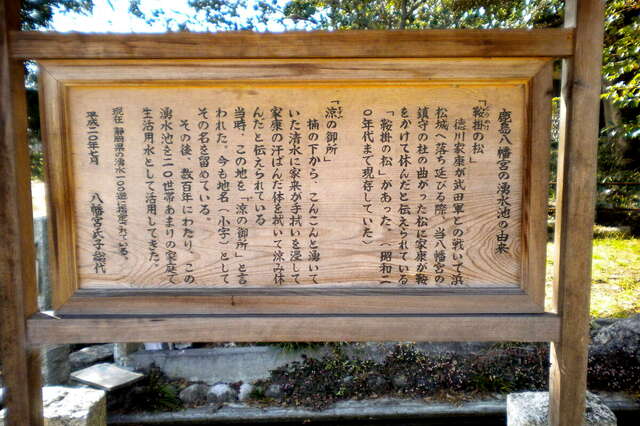 鹿島八幡宮の湧水池の由来
「鞍掛の松」
徳川家康が武田軍との戦いで浜
松城へ落ち延びる際、当八幡宮の
鎮守の杜の曲がった松に家康が鞍
をかけて休んだと伝えられている
「鞍掛の松」があった。（昭和二
〇年代まで現存していた）
「涼の御所」
楠の下から、こんこんと湧いて
いた清水に家来が手拭いを浸して
家康の汗ばんだ体を拭いて涼み休
んだと伝えられている
当時、この地を「涼の御所」と言
われた。今も地名（小字）として
その名を留めている。
その後、数百年にわたり、この
湧水池を二〇世帯あまりの家庭で
生活用水として活用してきた。
現在 静岡県の湧水一〇〇選に指定されている。
平成二〇年七月
八幡宮氏子総代